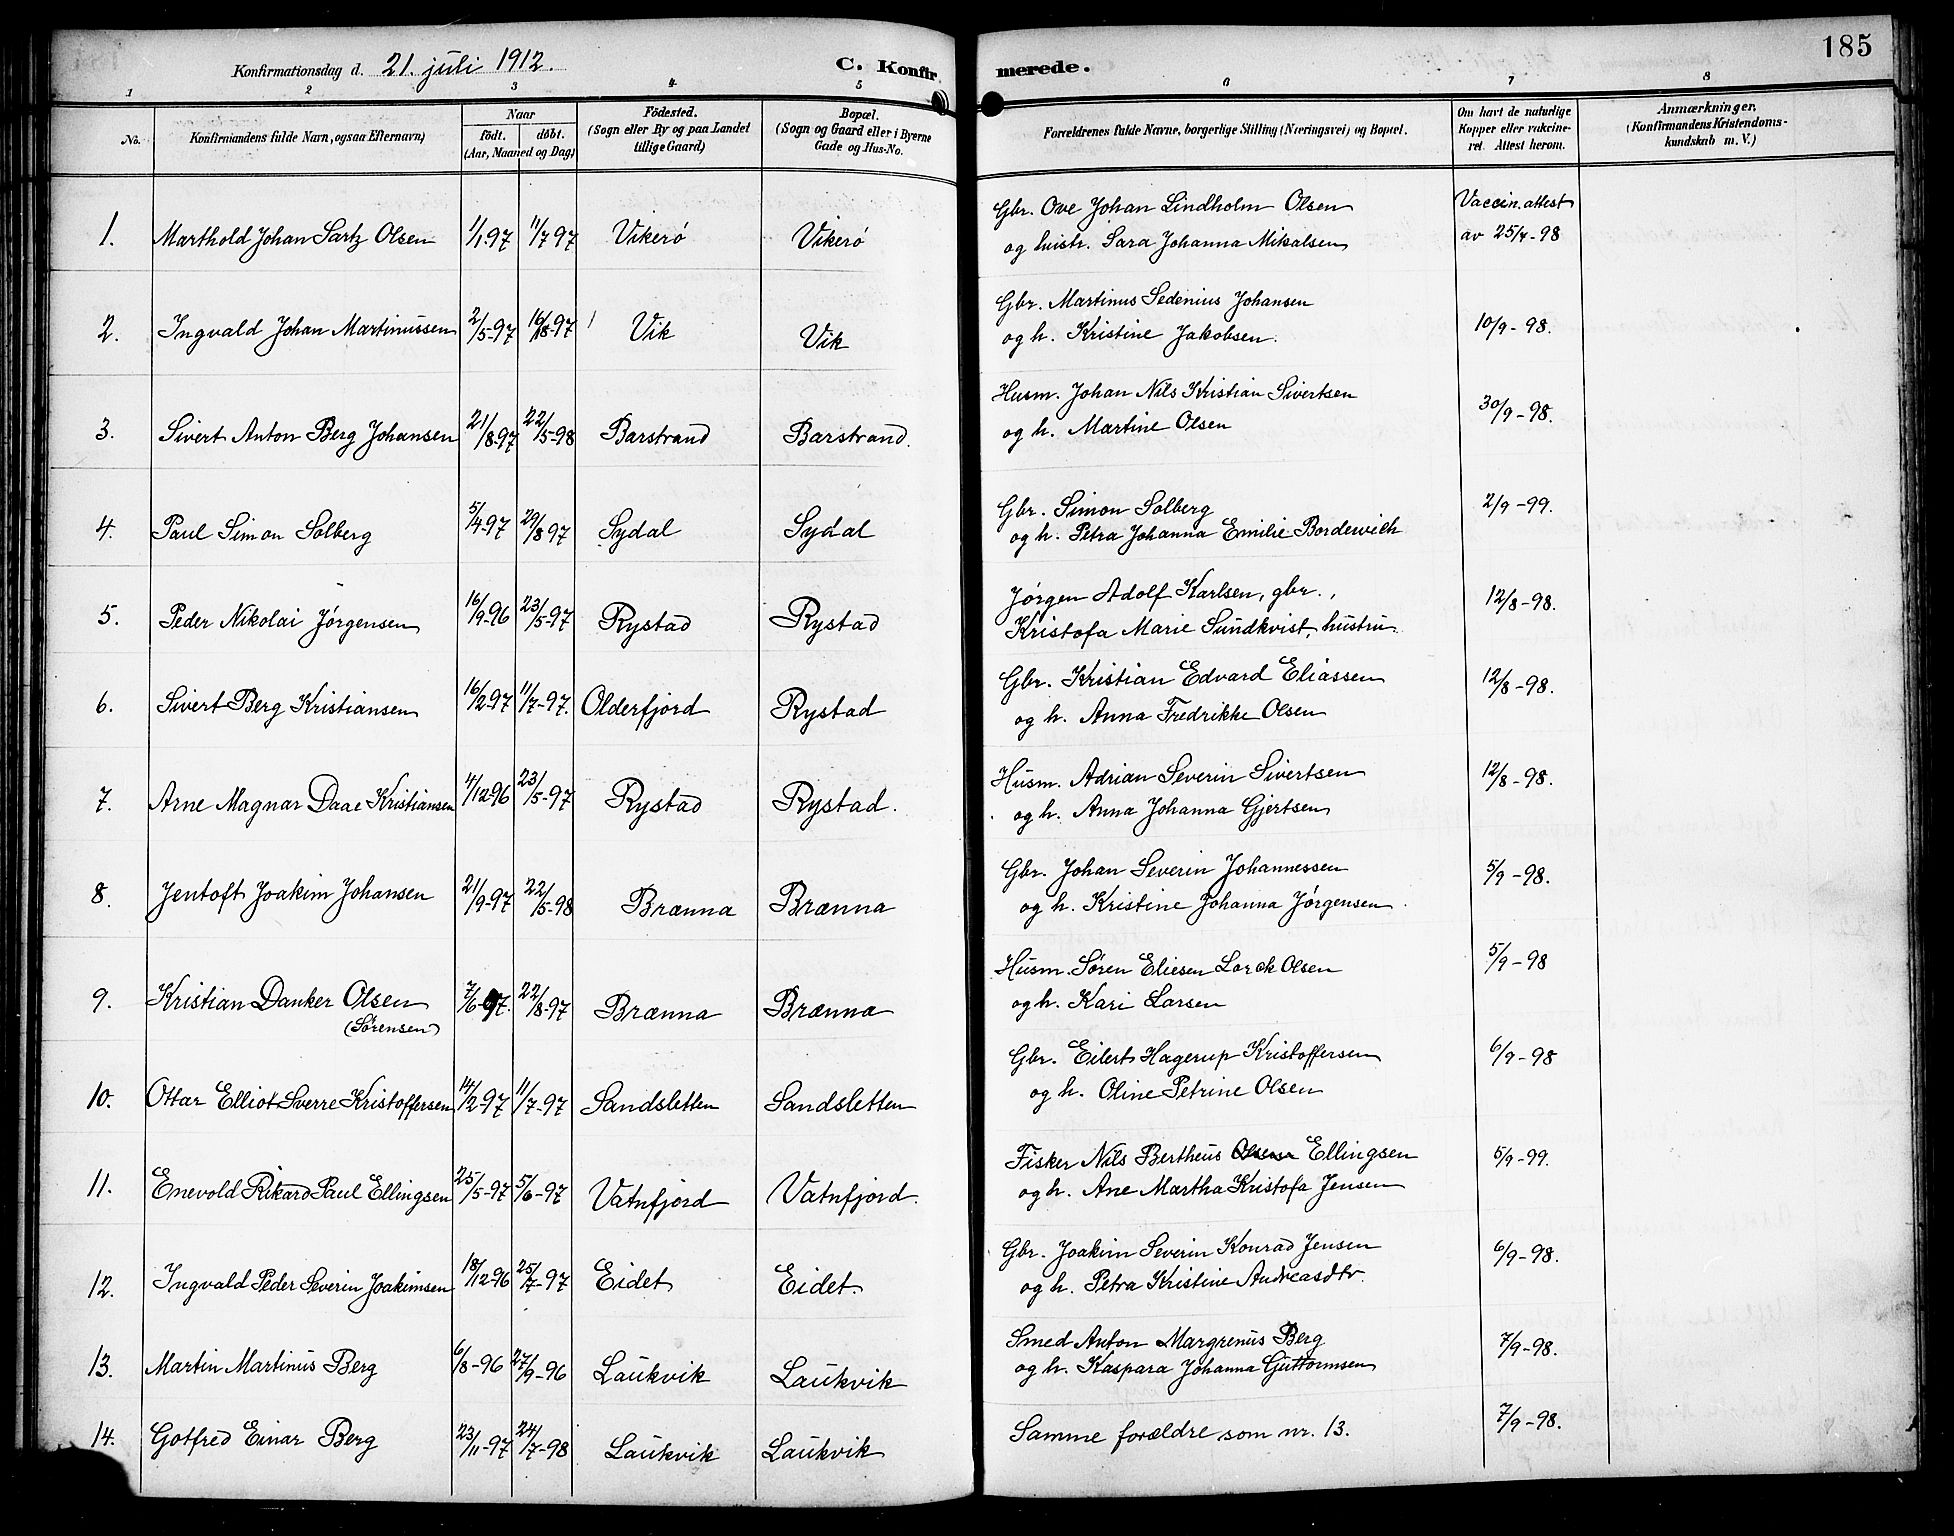 Konfirmationsdag d. 21. juli 1912. C. Konfirmerede. 185
1 2 3 4 5 6 7 8
No. Konfirmandens fulde Navn, ogsaa Efternavn)
Naar
født. døbt.
(Aar, Maaned og Dag)
Fødested.
(Sogn eller By og paa Landet
tillige Gaard)
Bopæl.
(Sogn og Gaard eller i Byerne
Gade og Hus-No.
Forældrenes fulde Navne, borgerlige Stilling (Næringsvei) og Bopæl.
Om havt de naturlige
Kopper eller vakcine-
ret. Attest herom.
Anmærkninger.
(Konfirmandens Kristendoms-
kundskab m. V.)
1. Marthold Johan Sartz Olsen 1/1-97 11/7 97 Vikerø Vikerø
Gbr. Ove Johan Lindholm Olsen
og huistr. Sara Johanna Mikalsen
Vaccin. attest
av 25/7-98
2. Ingvald Johan Martinussen 2/5-97 16/8-97 Vik Vik
Gbr. Martinus Sedenius Johansen
og h. Kristine Jakobsen.
10/9-98.
3. Sivert Anton Berg Johansen 21/8-97 22/5-98 Barstrand Barstrand.
Husm. Johan Nils Kristian Sivertsen
og h. Martine Olsen
30/9-98.
4. Paul Simon Solberg 5/4-97 29/8 97 Sydal Sydal
Gbr. Simon Solberg
og h. Petra Johanna Emilie Bordewich
2/9-99.
5. Peder Nikolai Jørgensen 16/9-96 23/5-97 Rystad Rystad
Jørgen Adolf Karlsen, gbr.,
Kristofa Marie Sundkvist, hustru.
12/8-98.
6. Sivert Berg Kristiansen 16/2-97 11/7-97. Olderfjord Rystad
Gbr. Kristian Edvard Eliassen
og h. Anna Fredrikke Olsen
12/8-98.
7. Arne Magnar Daae Kristiansen 4/12-96 23/5-97 Rystad Rystad.
Husm. Adrian Severin Sivertsen
og h. Anna Johanna Gjertsen
12/8-98.
8. Jentoft Joakim Johansen 21/9-97 22/5-98 Brænna Brænna
Gbr. Johan Severin Johannessen
og h. Kristine Johanna Jørgensen.
5/9-98.
9. Kristian Danker Olsen 7/6-97. 22/8-97 Brænna Brænna
(Sørensen)
Husm. Søren Eliesen Lorck Olsen
og h. Kari Larsen
5/9-98
10. Ottar Elliot Sverre Kristoffersen 14/2-97 11/7-97 Sandsletten Sandsletten
Gbr. Eilert Hagerup Kristoffersen
og h. Oline Petrine Olsen
6/9-98
11. Enevold Rikard Paul Ellingsen 25/5-97 5/6-97 Vatnfjord Vatnfjord.
Fisker Nils Bertheus Olsen Ellingsen
og h. Ane Martha Kristofa Jensen
5/9-99.
12. Ingvald Peder Severin Joakimsen 18/12-96 25/7-97 Eidet Eidet.
Gbr. Joakim Severin Konrad Jensen
og h. Petra Kristine Andreasdtr.
6/9-98.
13. Martin Martinus Berg 6/8-96 27/9-96 Laukvik Laukvik
Smed Anton Margrenus Berg
og h. Kaspara Johanna Guttormsen
7/9-98.
14. Gotfred Einar Berg 23/11-97 24/7-98 Laukvik Laukvik
Samme forældre som nr. 13.
7/9-98.